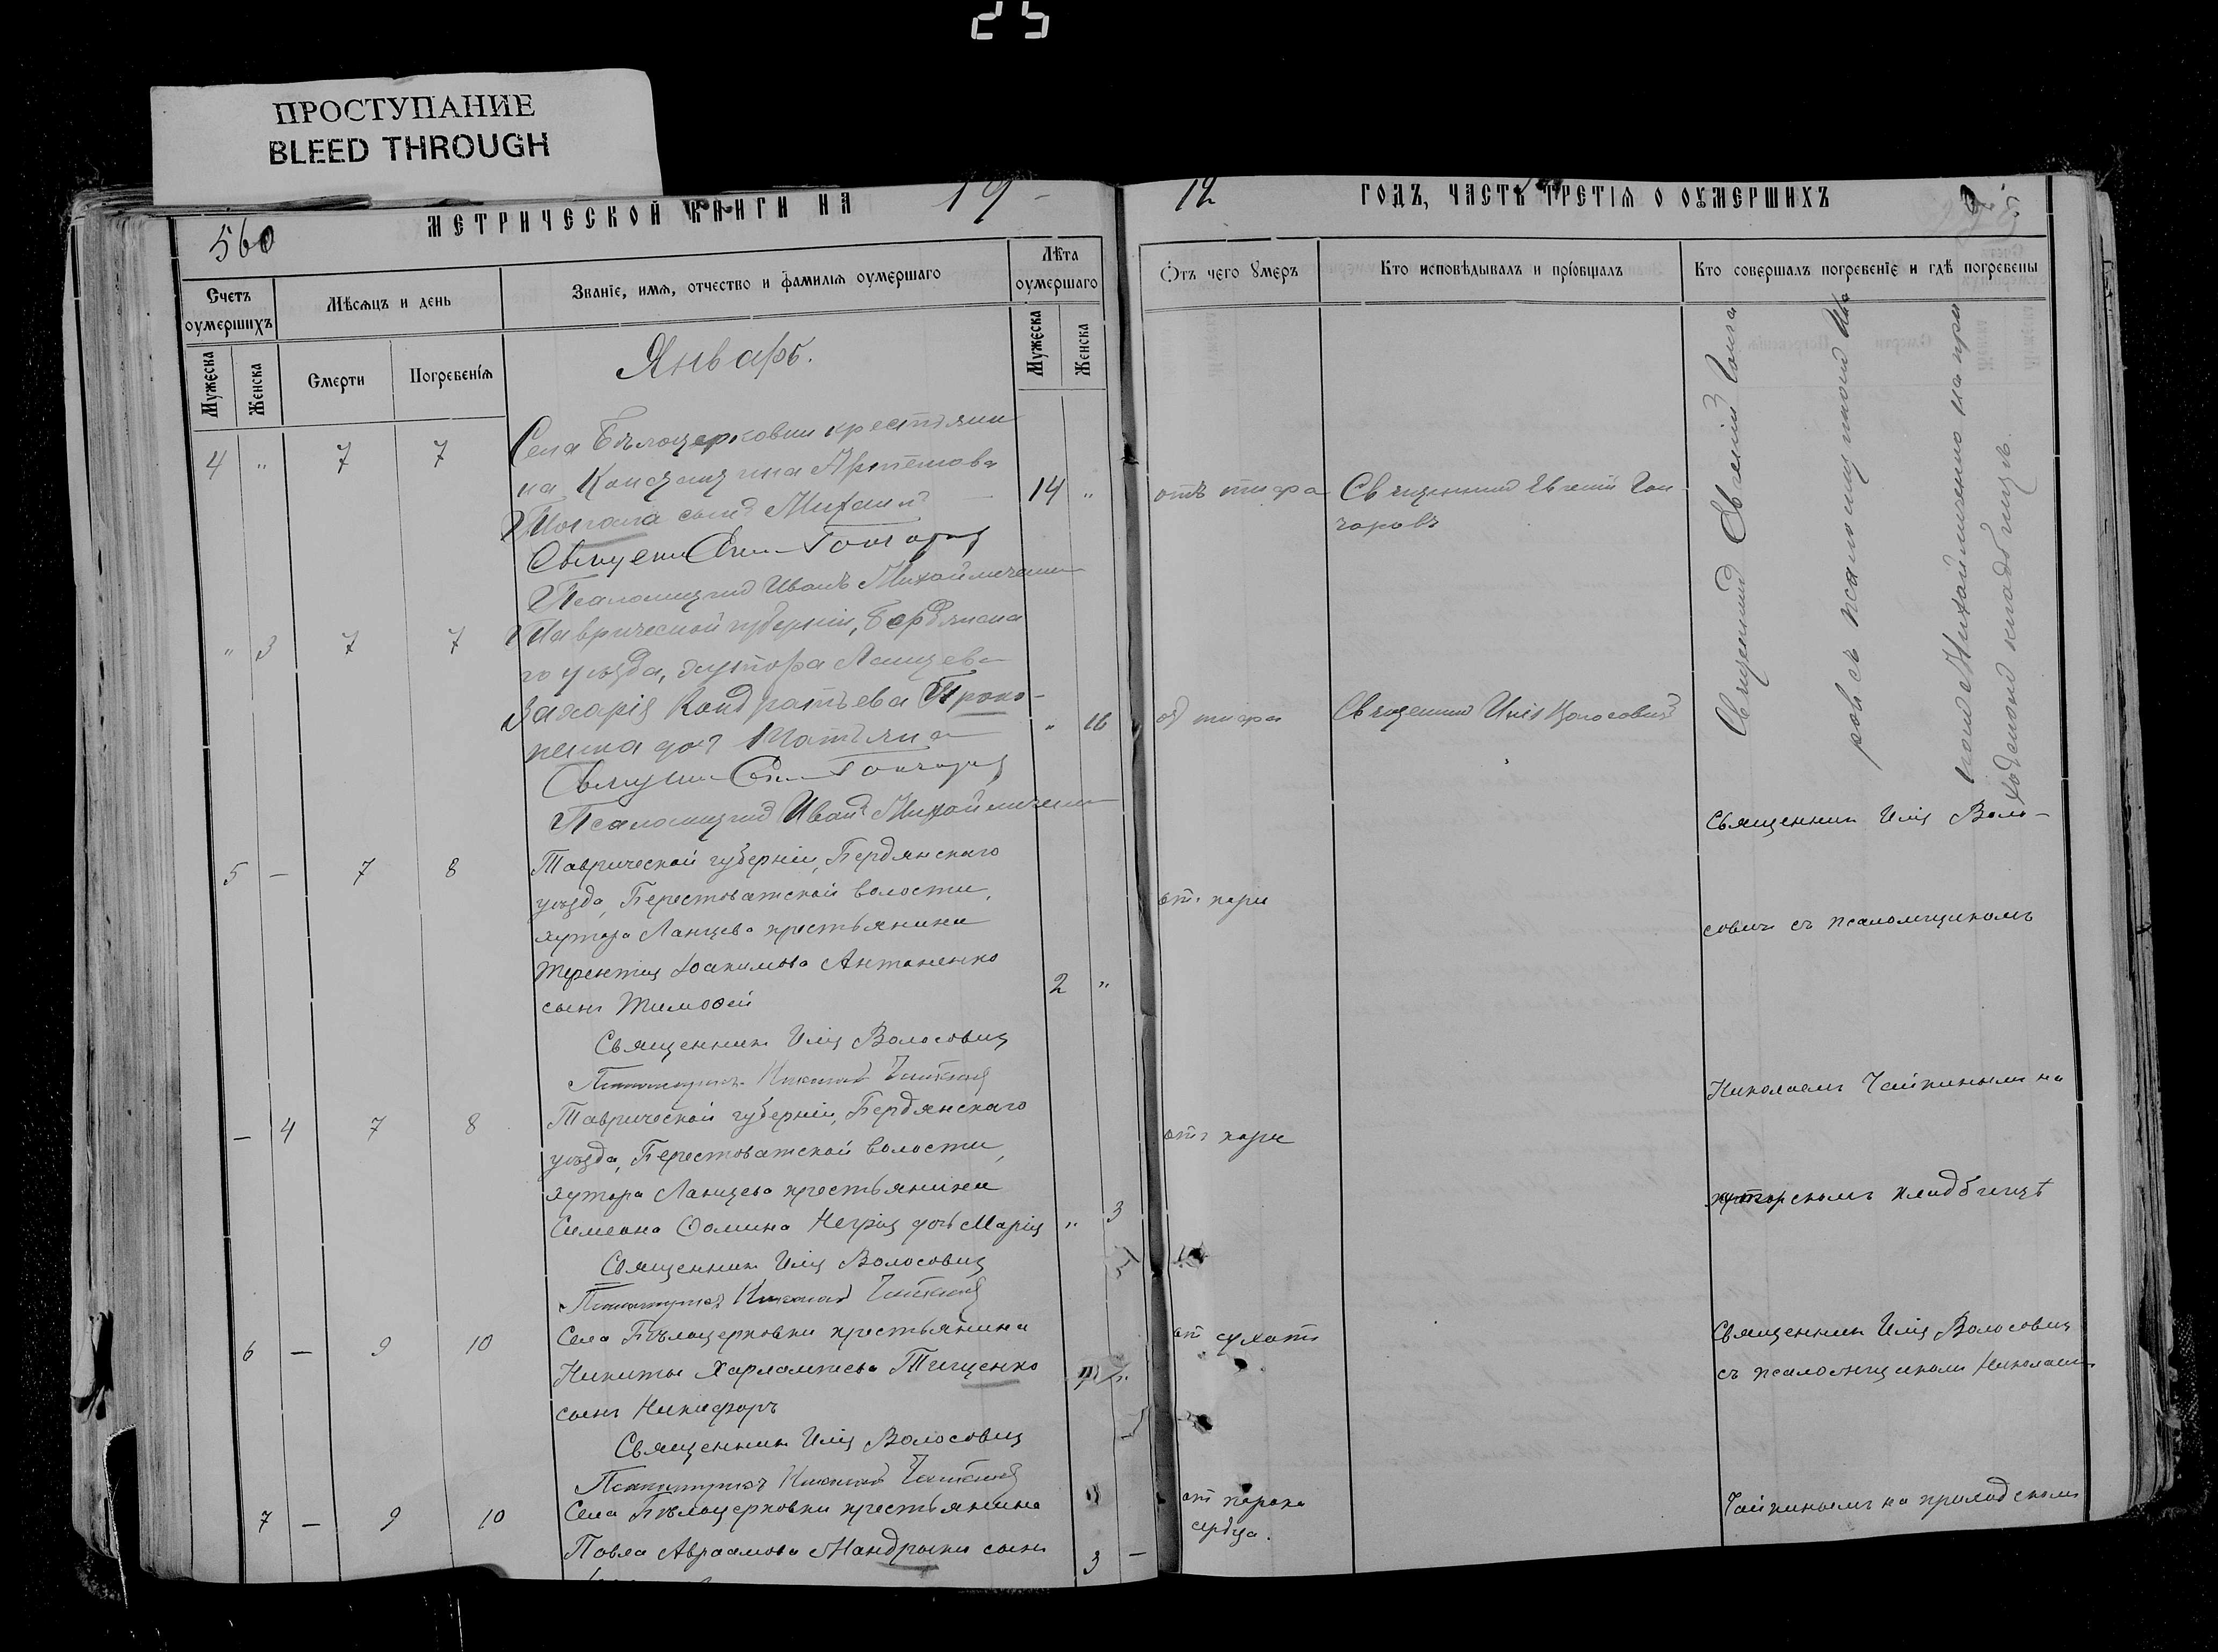 25
ПРОСТУПАНИЕ
BLEED THROUGH
560
МЕТРИЧЕСКОЙ КНИГИ НА 19
Счетъ оумершихъ
Мѣсяцъ и день
Званіе, имя, отчество и фамилія оумершаго
Лѣта оумершаго
Мужеска
Женска
Смерти
Погребенія
Мужеска
Женска
Январь.
4 " 7 7 Села Бѣлоцерковки крестьяни
на Константина Артемова
сынъ Михаилъ 14 "
Гончаровъ
Псаломщикъ Иванъ Михайличенко
" 3 7 7 Таврической губерніи, Бердянска
го уѣзда, хутора Ланцева
Захарія Кондратьева Проко-
пенка доч Татьяна " 16
Гончаровъ
Псаломщикъ Иванъ Михайличенко
5 — 7 8 Таврической губерніи, Бердянскаго
уѣзда, Берестоватской волости,
хутора Ланцева крестьянина
Терентія Іоакимова Антоненко
сынъ Тимофей 2 "
Священникъ Илія Волосовичъ
Псаломщикъ Николай Чайкинъ
— 4 7 8 Таврической губерніи, Бердянскаго
уѣзда, Берестоватской волости,
хутора Ланцева крестьянина
Симеона Фомина дочь Марія " 3
Священникъ Илія Волосовичъ
Псаломщикъ Николай Чайкинъ
6 — 9 10 Села Бѣлоцерковки крестьянина
Никиты Харлампиева Тищенко
сынъ Никифоръ
Священникъ Илія Волосовичъ
Псаломщикъ Николай Чайкинъ
7 — 9 10 Села Бѣлоцерковки крестьянина
Павла Авраамова Мандрыки сынъ 3 —
12 ГОДЪ, ЧАСТЬ ТРЕТІЯ О ОУМЕРШИХЪ
Отъ чего умеръ
Кто исповѣдывалъ и пріобщалъ
Кто совершалъ погребеніе и гдѣ погребены
отъ тифа
Священникъ Евгеній Гон-
чаровъ
от тифа
Священникъ Илія Волосовичъ
Священникъ Евгеній Гонча
ровъ съ псаломщикомъ Ива
номъ Михайличенко на при
ходскомъ кладбищѣ.
Священникъ Илія Воло-
отъ кори
совичъ съ псаломщикомъ
Николаемъ Чайкинымъ на
отъ кори
хуторскомъ кладбищѣ
от сухот
Священникъ Илія Волосовичъ
съ псаломщикомъ Николаемъ
от порока
сердца.
Чайкинымъ на приходскомъ